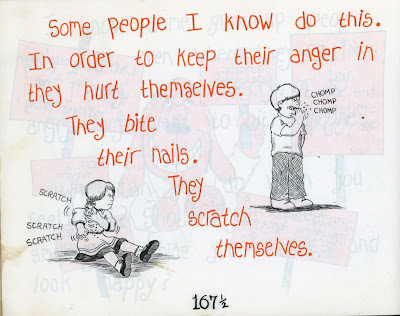 Some people I know do this.
In order to keep their anger in
they hurt themselves.
CHOMP
CHOMP
CHOMP
They bite
their nails.
They
scratch
themselves.
SCRATCH
SCRATCH
SCRATCH
look happy?
167½